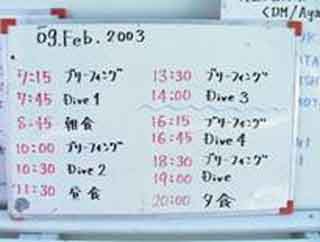 <DM/Aya
09.Feb. 2003
7:15 ブリーフィング
7:45 Dive 1
8:45 朝食
10:00 ブリーフィング
10:30 Dive 2
11:30 昼食
13:30 ブリーフィング
14:00 Dive 3
16:15 ブリーフィング
16:45 Dive 4
18:30 ブリーフィング
19:00 Dive
20:00 夕食